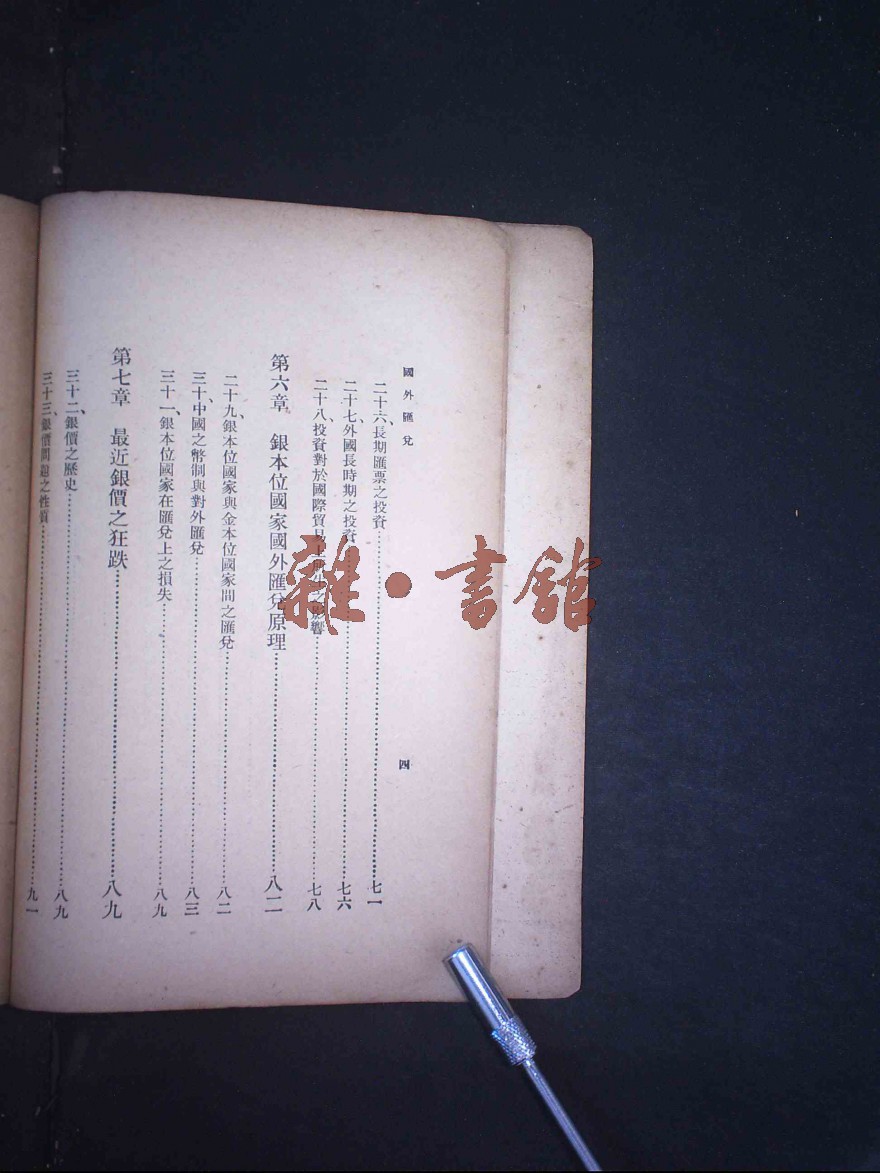 國外匯兌
四
二十六、長期匯票之投資……七一
二十七、外國長時期之投資……七六
二十八、投資對於國際貿易上影響……七八
第六章 銀本位國家國外匯兌原理……八二
二十九、銀本位國家與金本位國家間之匯兌……八二
三十、中國之幣制與對外匯兌……八三
三十一、銀本位國家在匯兌上之損失……八九
第七章 最近銀價之狂跌……八九
三十二、銀價之歷史……八九
三十三、銀價問題之性質……九一
雜·書館